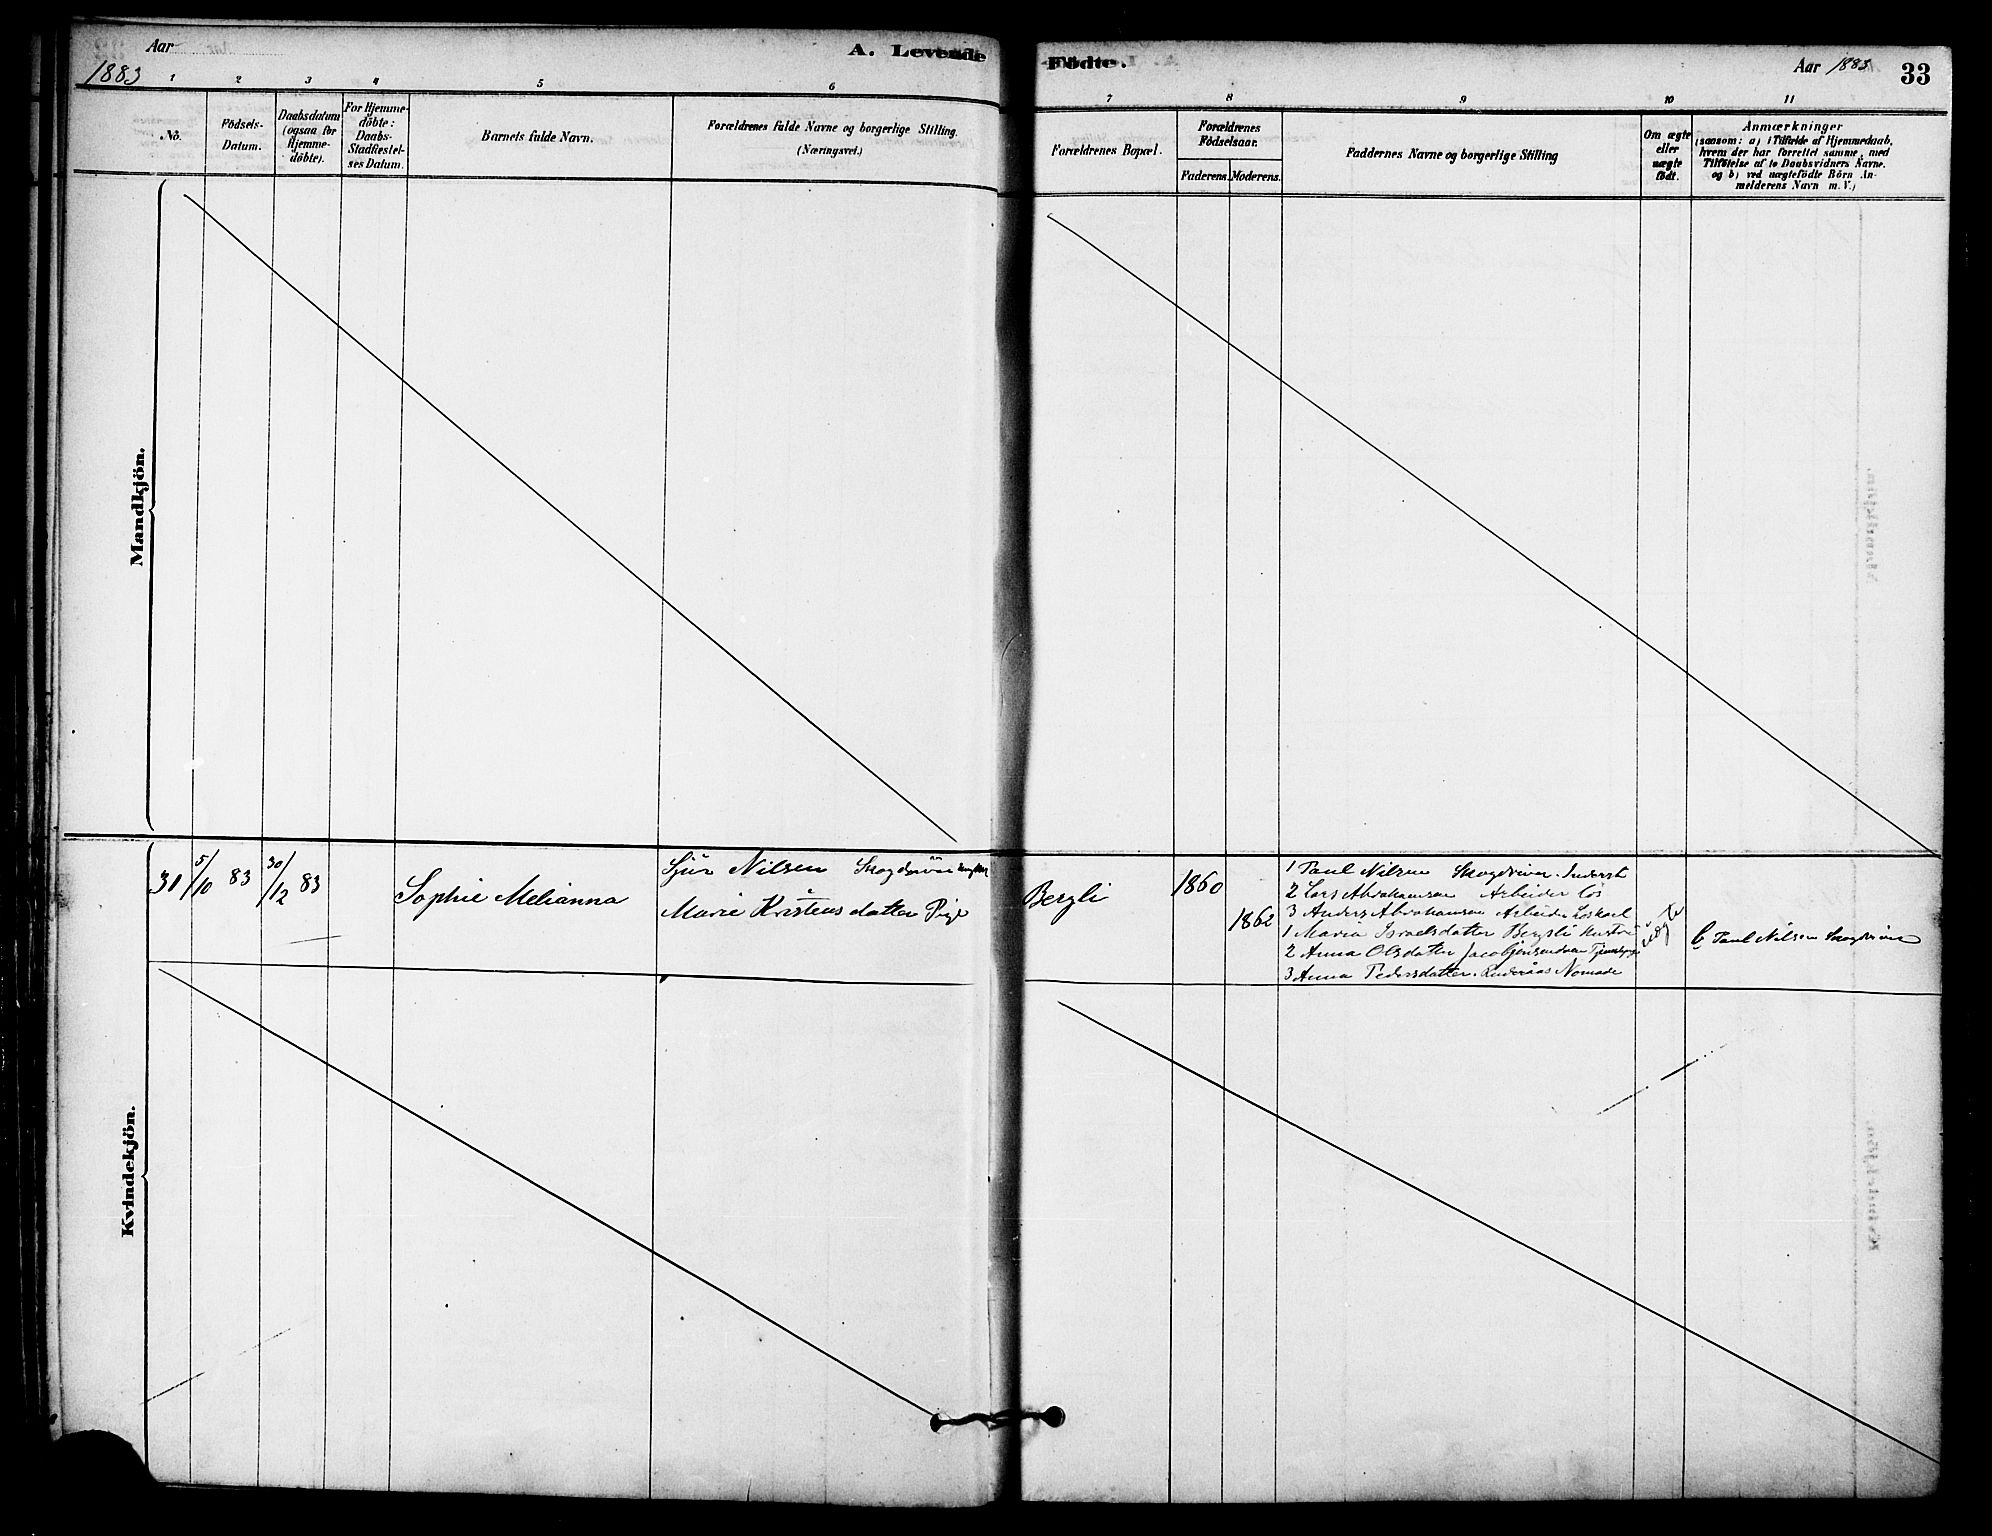 Aar
1883
A. Levende
Födte.
Aar 1883
33
1 2 3 4 5 6 7 8 9 10 11
No.
Födsels-
Datum.
Daabsdatum
(ogsaa for
Hjemme-
döbte).
For Hjemme-
döbte:
Daabs-
Stadfæstel-
ses Datum.
Barnets fulde Navn.
Forældrenes fulde Navne og borgerlige Stilling.
(Næringsvei.)
Forældrenes Bopæl.
Forældrenes
Födselsaar.
Faderens. Moderens.
Faddernes Navne og borgerlige Stilling
Om ægte
eller
uægte
födt.
Anmærkninger
(saasom: a) i Tilfælde af Hjemmedaab,
hvem der har forrettet samme, med
Tilföielse af to Daabsvidners Navne.
og b) ved uægtefödte Börn An-
melderens Navn m. V.)
Mandkjön.
Kvindekjön.
31 5/10 83 30/12 83
Sophie Melianna
Sjur Nilsen
Marie Kristensdatter Pige
Bergli
1860
1862
1 Paul Nilsen Skogdriver
2 Lars Abrahamsen Arbeider
3 Anders Abrahamsen Arbeider
1 Maria Israelsdatter Bergsli Hustru
2 Anna Olsdatter
3 Anna Pedersdatter Nomade
uægte
Paul Nilsen Skogdriver